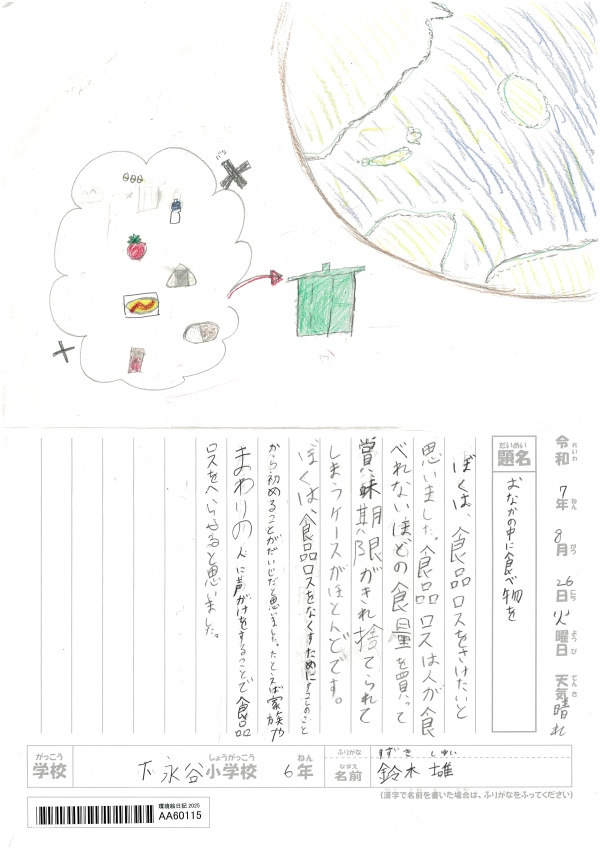 令和7年8月26日火曜日 天気晴れ
れいわ ねん がつ にち ようび てんき
だいめい
題名
おなかの中に食べ物を
ぼくは、食品ロスをさけたいと
思いました。食品ロスは人が食
べれないほどの食量を買って
賞味期限がきれ捨てられて
しまうケースがほとんどです。
ぼくは、食品ロスをなくすためにすこしのこと
から初めることがだいじだと思いました。たとえば家族や
まわりの人に声がけをすることで食品
ロスをへらせると思いました。
がっこう しょうがっこう ねん ふりがな すずき しゅい
学校 下永谷小学校 6年 なまえ 名前 鈴木 雄
(漢字で名前を書いた場合は、ふりがなをふってください)
環境絵日記 2025
AA60115